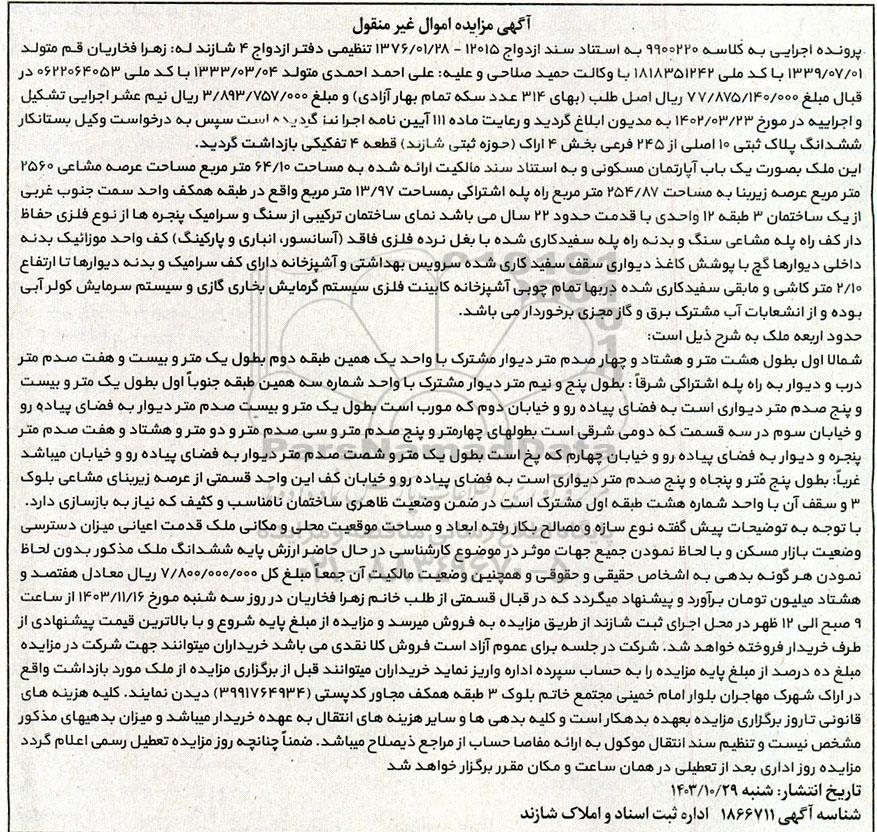 آگهی مزایده اموال غیر منقول
پرونده اجرایی به کلاسه ۹۹۰۰۲۲۰ به استناد سند ازدواج ۱۲۰۱۵ - ۱۳۷۶/۰۱/۲۸ تنظیمی دفتر ازدواج ۴ شازند له: زهرا فخاریان قم متولد
۱۳۳۹/۰۷/۰۱ با کد ملی ۱۸۱۸۳۵۱۲۴۲ با وکالت حمید صلاحی و علیه: علی احمد احمدی متولد ۱۳۳۳/۰۳/۰۴ با کد ملی ۰۶۲۲۰۶۴۰۵۳ در
قبال مبلغ ۷۷/۸۷۵/۱۴۰/۰۰۰ ریال اصل طلب (بهای ۳۱۴ عدد سکه تمام بهار آزادی) و مبلغ ۳/۸۹۳/۷۵۷/۰۰۰ ریال نیم عشر اجرایی تشکیل
و اجراییه در مورخ ۱۴۰۲/۰۳/۲۳ به مدیون ابلاغ گردید و رعایت ماده ۱۱۱ آیین نامه اجرا نیز گردیده است سپس به درخواست وکیل بستانکار
ششدانگ پلاک ثبتی ۱۰ اصلی از ۲۴۵ فرعی بخش ۴ اراک (حوزه ثبتی شازند) قطعه ۴ تفکیکی بازداشت گردید.
این ملک بصورت یک باب آپارتمان مسکونی و به استناد سند مالکیت ارائه شده به مساحت ۶۴/۱۰ متر مربع مساحت عرصه مشاعی ۲۵۶۰
متر مربع عرصه زیربنا به مساحت ۲۵۴/۸۷ متر مربع راه پله اشتراکی بمساحت ۱۳/۹۷ متر مربع واقع در طبقه همکف واحد سمت جنوب غربی
از یک ساختمان ۳ طبقه ۱۲ واحدی با قدمت حدود ۲۲ سال می باشد نمای ساختمان ترکیبی از سنگ و سرامیک پنجره ها از نوع فلزی حفاظ
دار کف راه پله مشاعی سنگ و بدنه راه پله سفیدکاری شده با بغل نرده فلزی فاقد (آسانسور، انباری و پارکینگ) کف واحد موزائیک بدنه
داخلی دیوارها گچ با پوشش کاغذ دیواری سقف سفید کاری شده سرویس بهداشتی و آشپزخانه دارای کف سرامیک و بدنه دیوارها تا ارتفاع
۲/۱۰ متر کاشی و مابقی سفیدکاری شده دربها تمام چوبی آشپزخانه کابینت فلزی سیستم گرمایش بخاری گازی و سیستم سرمایش کولر آبی
بوده و از انشعابات آب مشترک برق و گاز مجزی برخوردار می باشد.
حدود اربعه ملک به شرح ذیل است:
شمالا اول بطول هشت متر و هشتاد و چهار صدم متر دیوار مشترک با واحد یک همین طبقه دوم بطول یک متر و بیست و هفت صدم متر
درب و دیوار به راه پله اشتراکی شرقاً : بطول پنج و نیم متر دیوار مشترک با واحد شماره سه همین طبقه جنوباً اول بطول یک متر و بیست
و پنج صدم متر دیواری است به فضای پیاده رو و خیابان دوم که مورب است بطول یک متر و بیست صدم متر دیوار به فضای پیاده رو
و خیابان سوم در سه قسمت که دومی شرقی است بطولهای چهارمتر و پنج صدم متر و سی صدم متر و دو متر و هشتاد و هفت صدم متر
پنجره و دیوار به فضای پیاده رو و خیابان چهارم که پخ است بطول یک متر و شصت صدم متر دیوار به فضای پیاده رو و خیابان میباشد
غرباً: بطول پنج متر و پنجاه و پنج صدم متر دیواری است به فضای پیاده رو و خیابان کف این واحد قسمتی از عرصه زیربنای مشاعی بلوک
۳ و سقف آن با واحد شماره هشت طبقه اول مشترک است در ضمن وضعیت ظاهری ساختمان نامناسب و کثیف که نیاز به بازسازی دارد.
با توجه به توضیحات پیش گفته نوع سازه و مصالح بکار رفته ابعاد و مساحت موقعیت محلی و مکانی ملک قدمت اعیانی میزان دسترسی
وضعیت بازار مسکن و با لحاظ نمودن جمیع جهات موثر در موضوع کارشناسی در حال حاضر ارزش پایه ششدانگ ملک مذکور بدون لحاظ
نمودن هر گونه بدهی به اشخاص حقیقی و حقوقی و همچنین وضعیت مالکیت آن جمعاً مبلغ کل ۷/۸۰۰/۰۰۰/۰۰۰ ریال معادل هفتصد و
هشتاد میلیون تومان برآورد و پیشنهاد میگردد که در قبال قسمتی از طلب خانم زهرا فخاریان در روز سه شنبه مورخ ۱۴۰۳/۱۱/۱۶ از ساعت
۹ صبح الی ۱۲ ظهر در محل اجرای ثبت شازند از طریق مزایده به فروش میرسد و مزایده از مبلغ پایه شروع و با بالاترین قیمت پیشنهادی از
طرف خریدار فروخته خواهد شد. شرکت در جلسه برای عموم آزاد است فروش کلا نقدی می باشد خریداران میتوانند جهت شرکت در مزایده
مبلغ ده درصد از مبلغ پایه مزایده را به حساب سپرده اداره واریز نماید خریداران میتوانند قبل از برگزاری مزایده از ملک مورد بازداشت واقع
در اراک شهرک مهاجران بلوار امام خمینی مجتمع خاتم بلوک ۳ طبقه همکف مجاور کدپستی (۳۹۹۱۷۶۴۹۳۴) دیدن نمایند. کلیه هزینه های
قانونی تا روز برگزاری مزایده بعهده بدهکار است و کلیه بدهی ها و سایر هزینه های انتقال به عهده خریدار میباشد و میزان بدهیهای مذکور
مشخص نیست و تنظیم سند انتقال موکول به ارائه مفاصا حساب از مراجع ذیصلاح میباشد. ضمناً چنانچه روز مزایده تعطیل رسمی اعلام گردد
مزایده روز اداری بعد از تعطیلی در همان ساعت و مکان مقرر برگزار خواهد شد
تاریخ انتشار: شنبه ۱۴۰۳/۱۰/۲۹
شناسه آگهی ۱۸۶۶۷۱۱ اداره ثبت اسناد و املاک شازند
ParsNamadData
۰۲۱-۸۸۳۴۹۶۷۰-۵